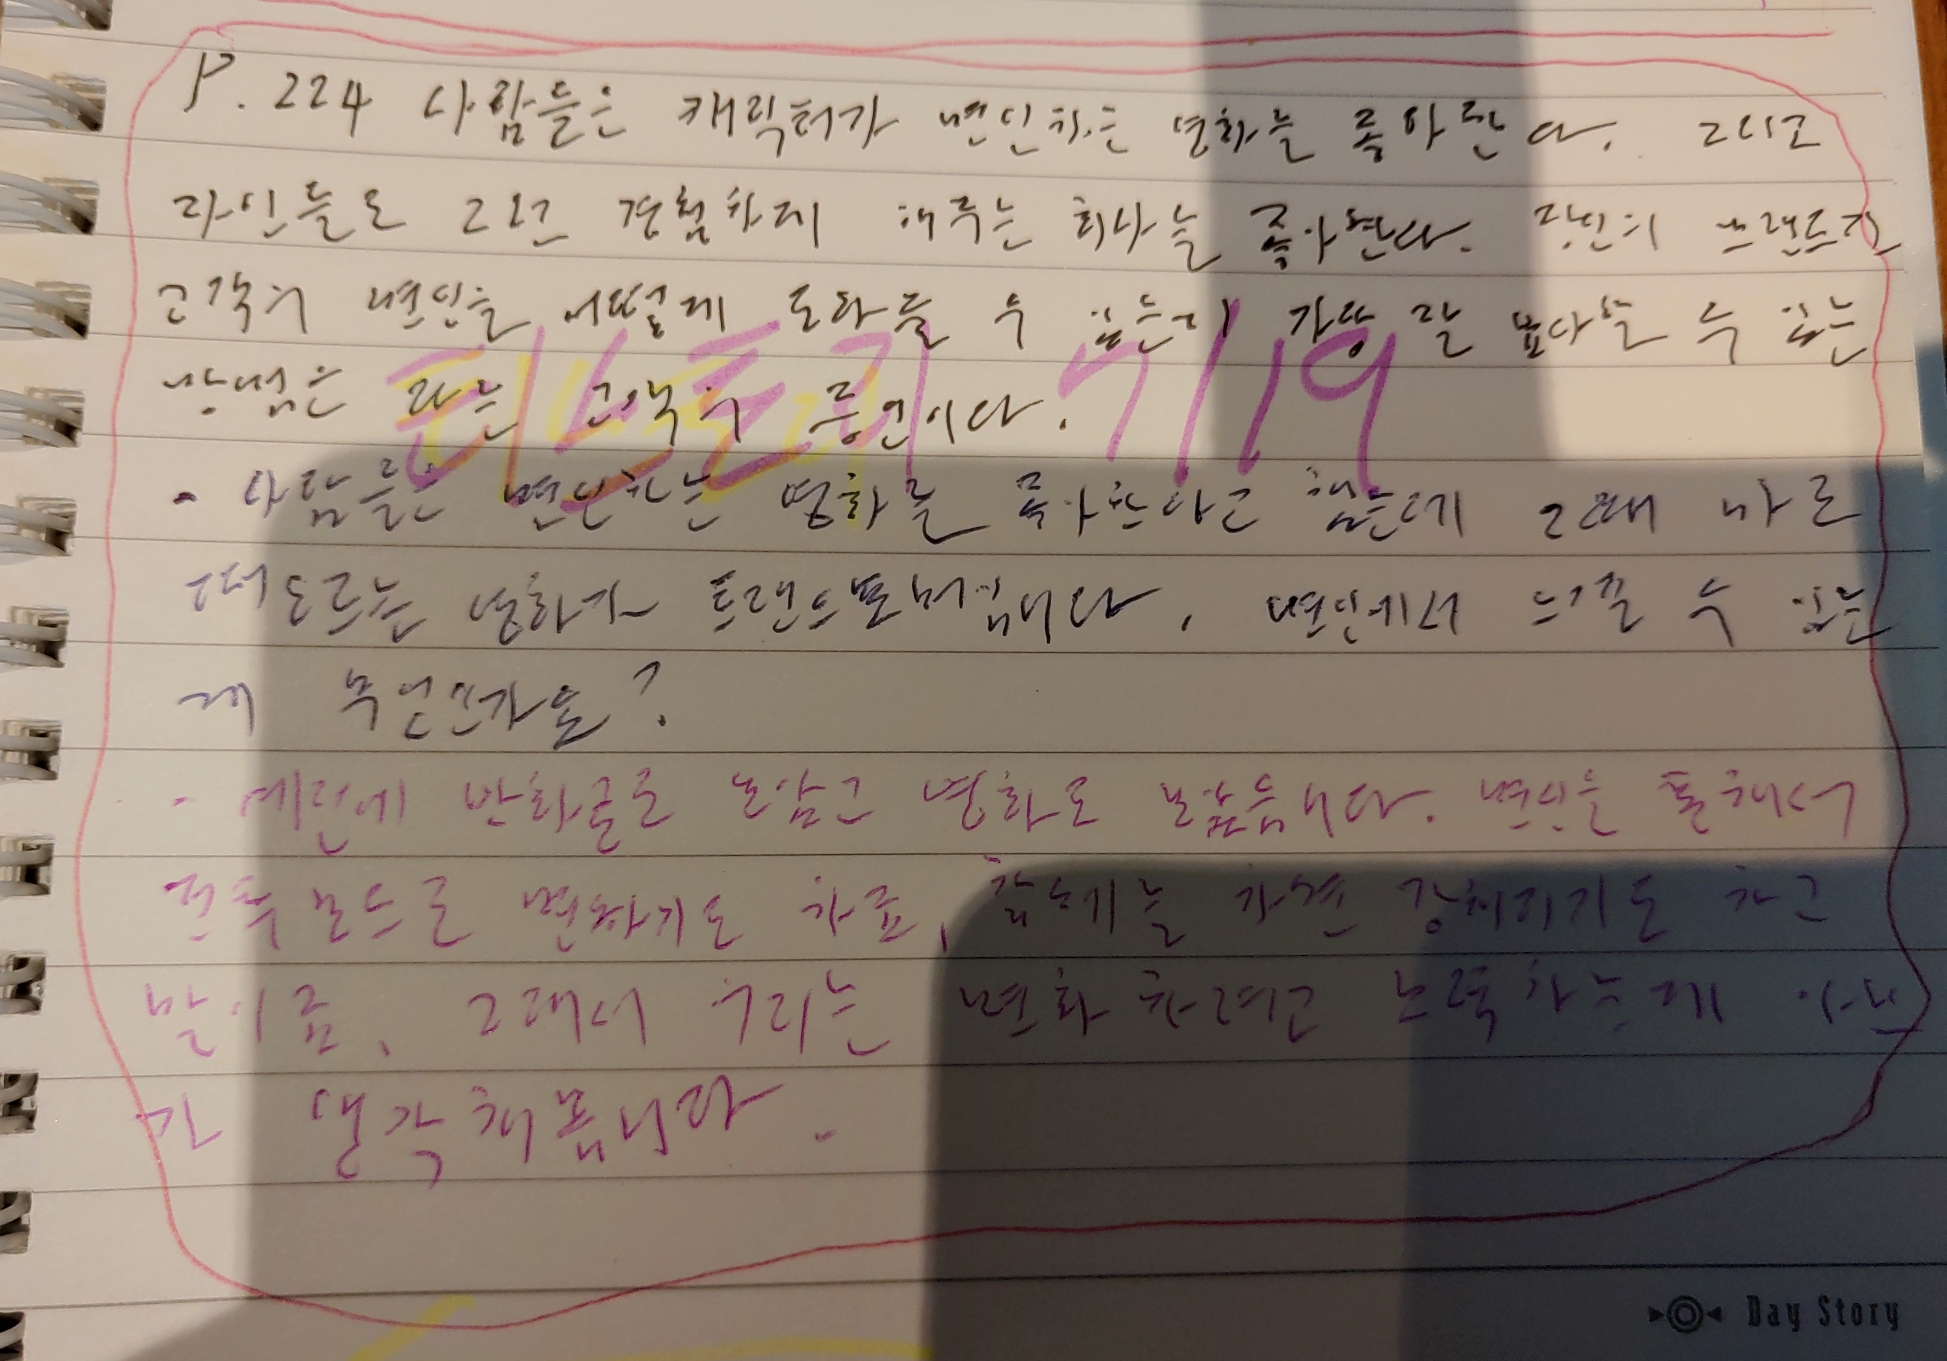 P. 224 사람들은 캐릭터가 변신하는 영화를 좋아한다. 그리고
타인들도 그런 경험하게 해주는 회사를 좋아한다. 당신의 브랜드가
고객의 변신을 어떻게 도와줄 수 있는지 가장 잘 보여줄 수 있는
방법은 다른 고객의 증언이다.
티스토리 7/19
- 사람들은 변신하는 영화를 좋아한다고 했는데 그때 바로
떠오르는 영화가 트랜스포머입니다. 변신에서 느낄 수 있는
게 무언가요?
- 예전에 만화글로 보았고 영화도 보았습니다. 변신을 통해서
전투모드로 변하기도 하죠, 합체를 하면 강해지기도 하고
말이죠. 그래서 우리는 변화하려고 노력하는게 아닌
가 생각해봅니다.
Day Story